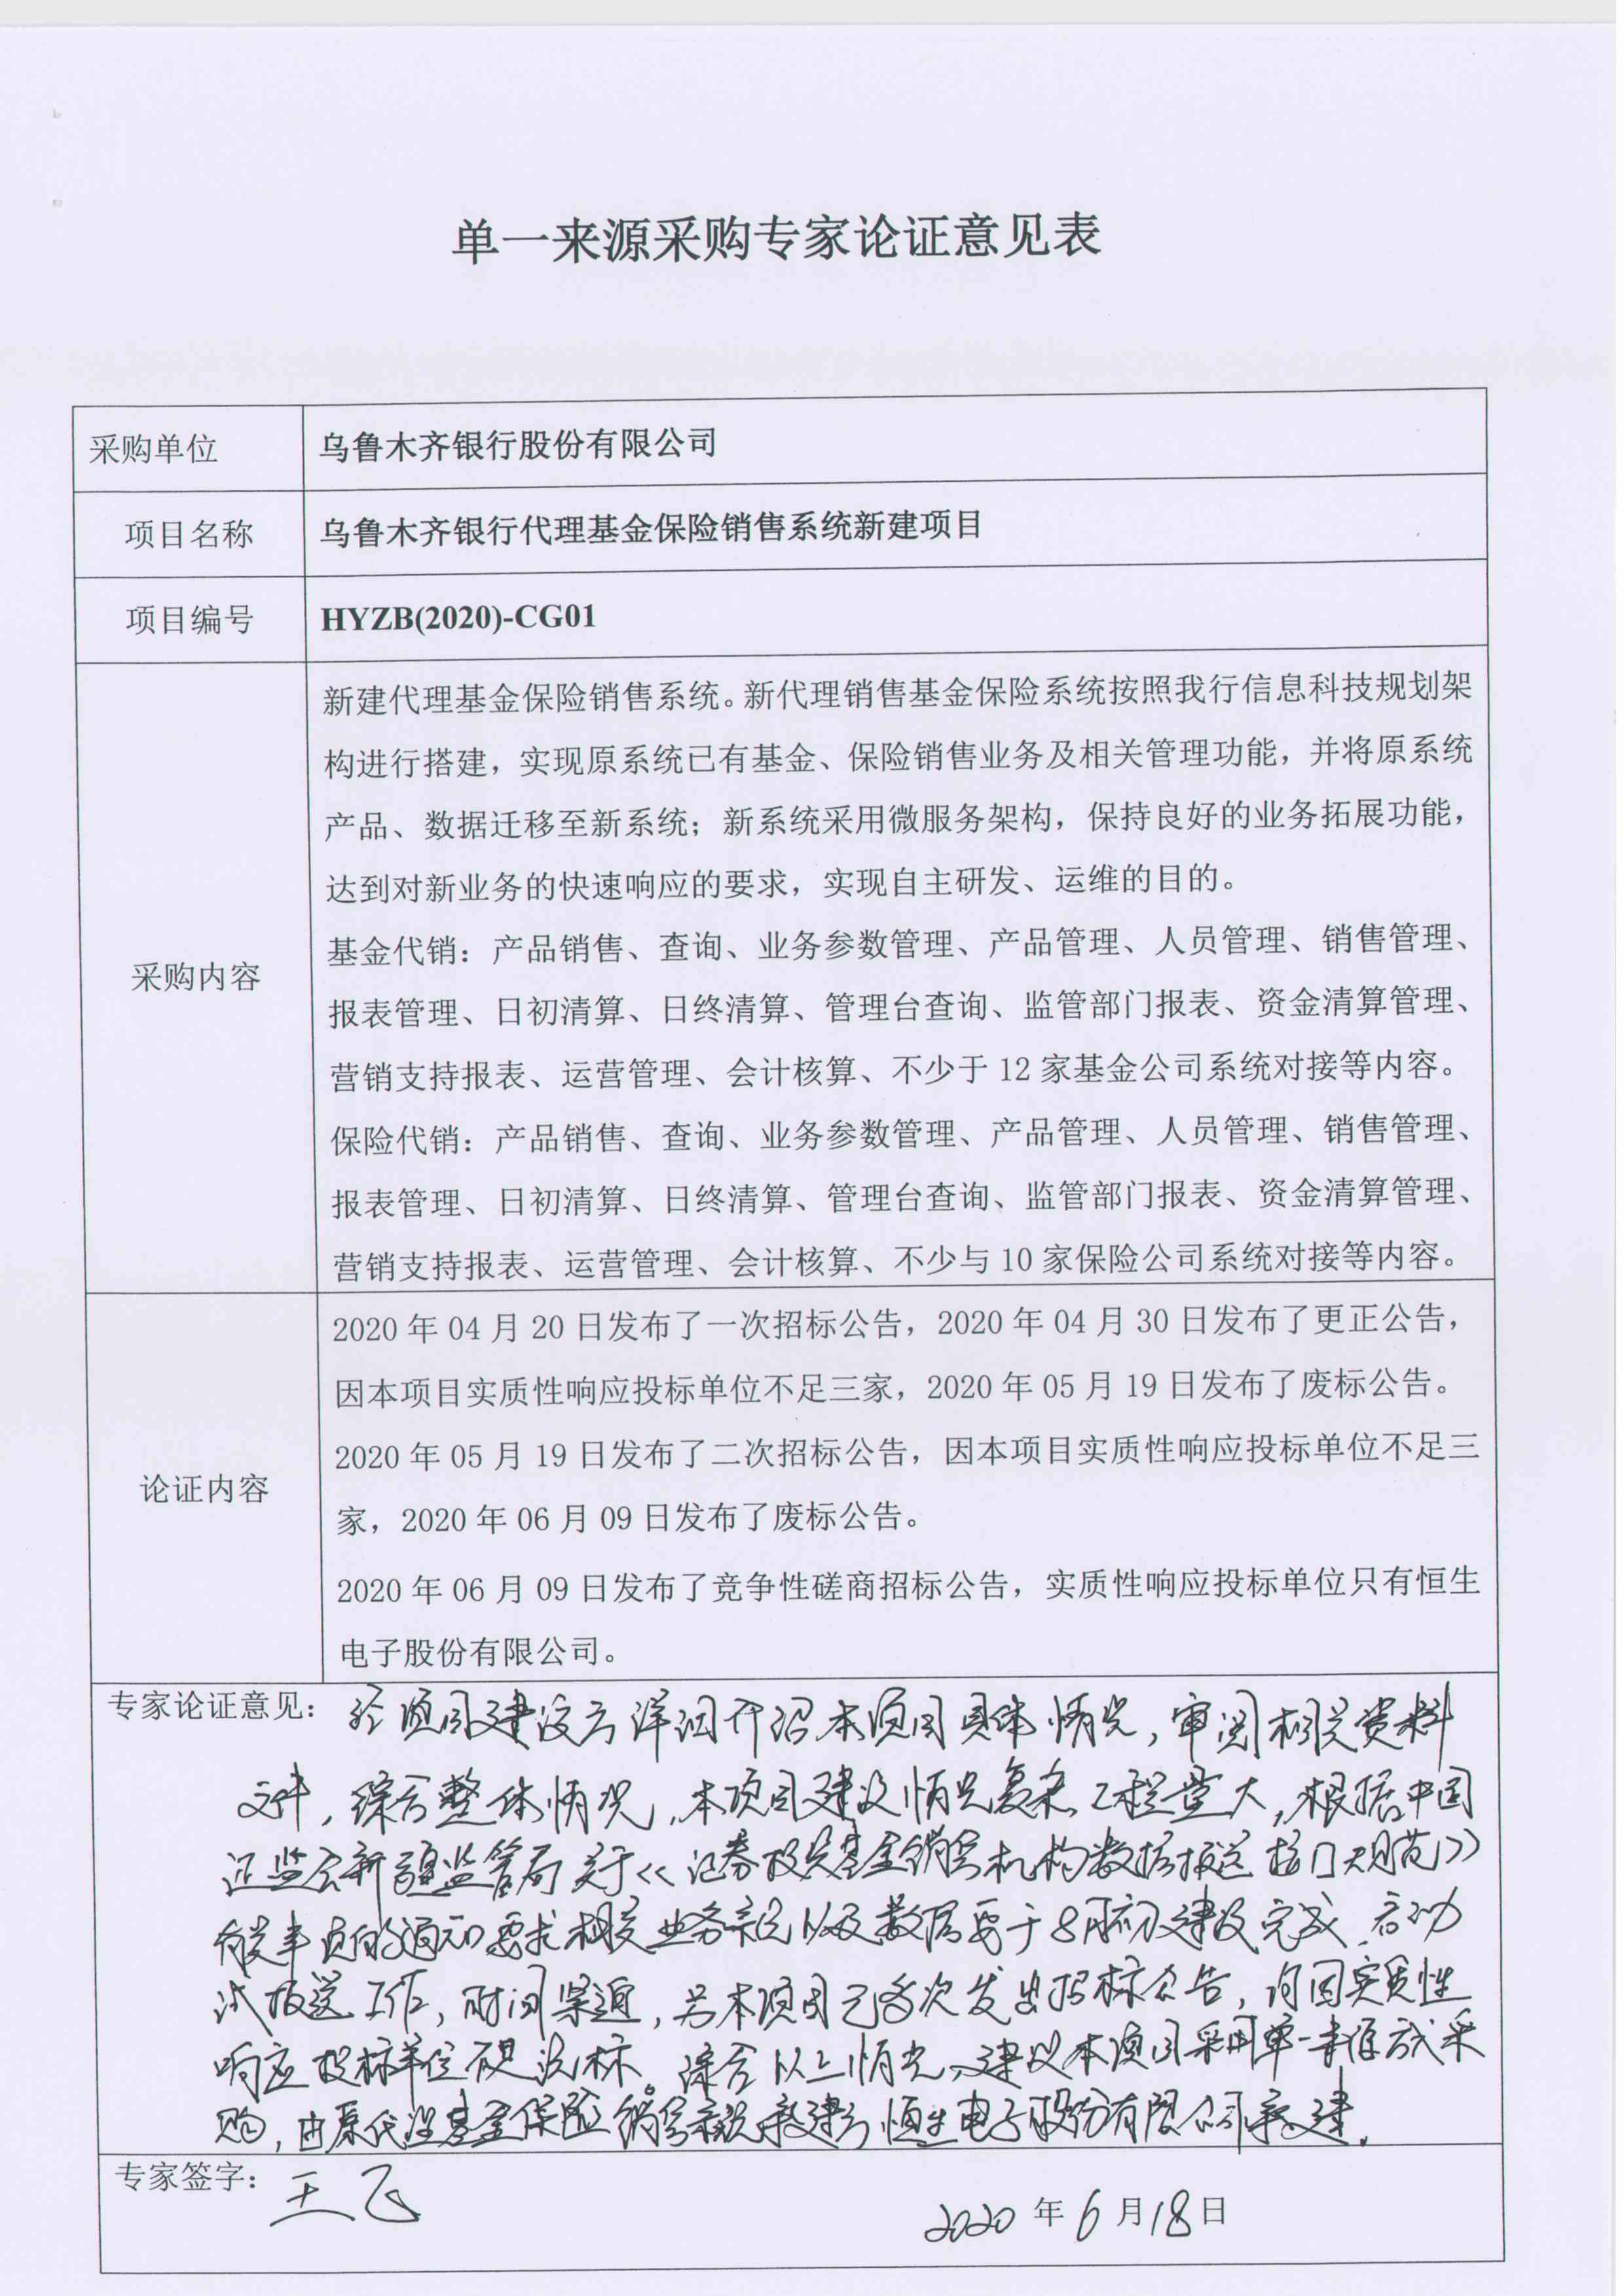 单一来源采购专家论证意见表
采购单位
乌鲁木齐银行股份有限公司
项目名称
乌鲁木齐银行代理基金保险销售系统新建项目
项目编号
HYZB(2020)-CG01
采购内容
新建代理基金保险销售系统。新代理销售基金保险系统按照我行信息科技规划架
构进行搭建，实现原系统已有基金、保险销售业务及相关管理功能，并将原系统
产品、数据迁移至新系统；新系统采用微服务架构，保持良好的业务拓展功能，
达到对新业务的快速响应的要求，实现自主研发、运维的目的。
基金代销：产品销售、查询、业务参数管理、产品管理、人员管理、销售管理、
报表管理、日初清算、日终清算、管理台查询、监管部门报表、资金清算管理、
营销支持报表、运营管理、会计核算、不少于 12 家基金公司系统对接等内容。
保险代销：产品销售、查询、业务参数管理、产品管理、人员管理、销售管理、
报表管理、日初清算、日终清算、管理台查询、监管部门报表、资金清算管理、
营销支持报表、运营管理、会计核算、不少与 10 家保险公司系统对接等内容。
论证内容
2020 年 04 月 20 日发布了一次招标公告，2020 年 04 月 30 日发布了更正公告，
因本项目实质性响应投标单位不足三家，2020 年 05 月 19 日发布了废标公告。
2020 年 05 月 19 日发布了二次招标公告，因本项目实质性响应投标单位不足三
家，2020 年 06 月 09 日发布了废标公告。
2020 年 06 月 09 日发布了竞争性磋商招标公告，实质性响应投标单位只有恒生
电子股份有限公司。
专家论证意见：经项目建设方详细介绍本项目具体情况，审阅相关资料
文件，综合整体情况，本项目建设情况复杂、工程量大，根据中国
证监会新疆监管局关于《证券投资基金销售机构数据报送接口规范》
有关事项的通知要求相关业务系统以及数据要于8月初建设完成，启动
试报送工作，时间紧迫，另本项目已多次发出招标公告，均因实质性
响应投标单位不足流标。综合以上情况，建议本项目采用单一来源方式采
购，由原代理基金保险销售系统承建方恒生电子股份有限公司承建。
专家签字：王飞
2020 年 6 月 18 日